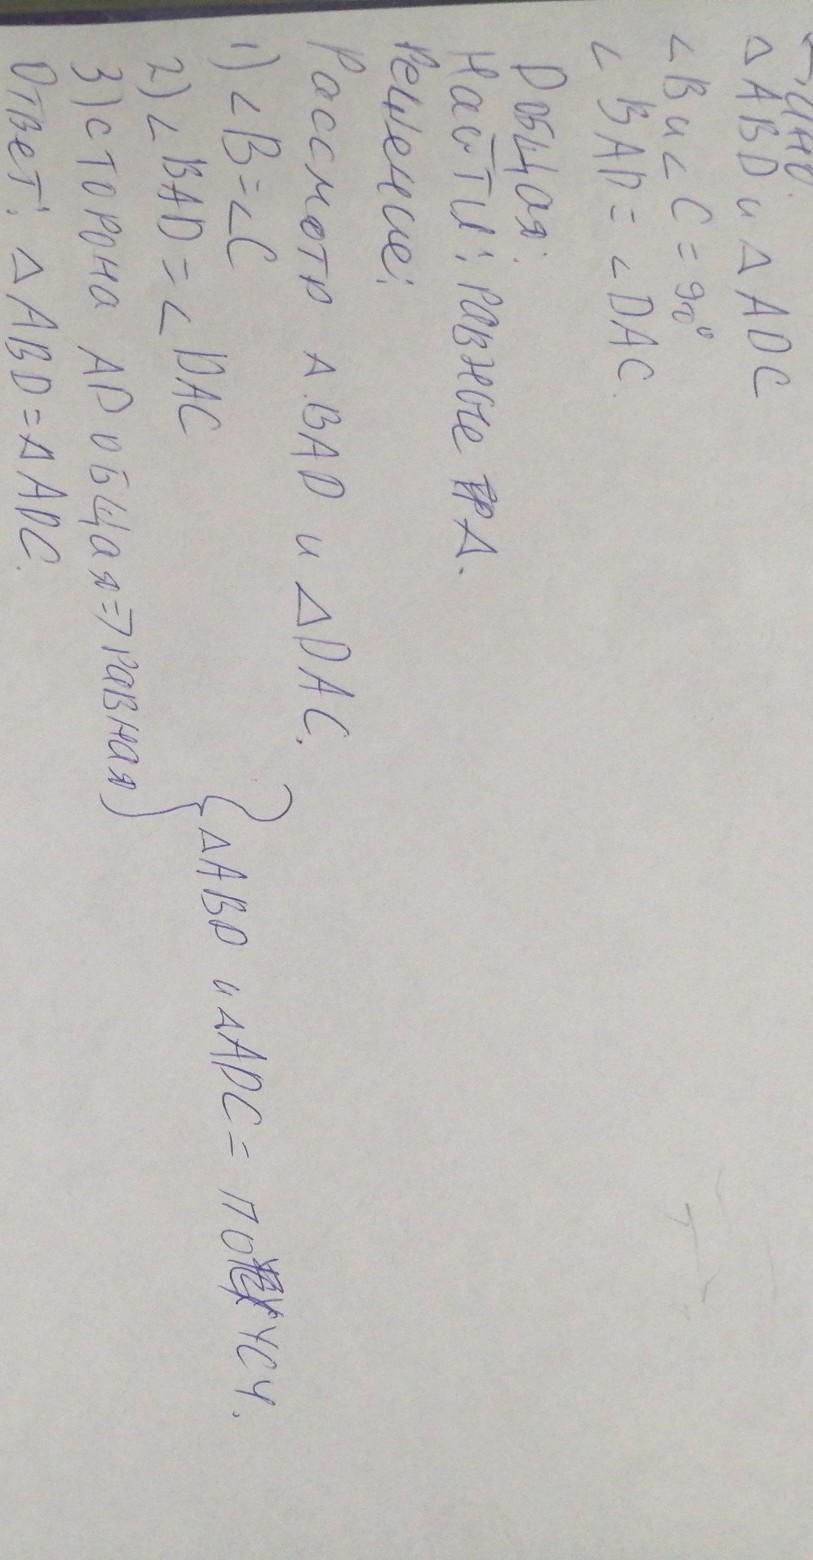 Дано:
△ ABD и △ ADC
∠B и ∠C = 90°
∠ BAD = ∠ DAC.
D общая.
Найти: равные △.
Решение:
Рассмотр △ BAD и △ DAC.
1) ∠B = ∠C
2) ∠BAD = ∠ DAC
3) сторона AD общая => равная
△ABD и △ADC = по УСУ.
Ответ: △ ABD = △ ADC.